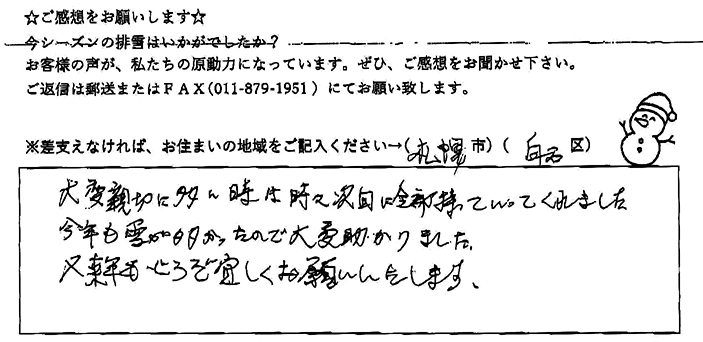 ☆ご感想をお願いします☆
今シーズンの排雪はいかがでしたか？
お客様の声が、私たちの原動力になっています。ぜひ、ご感想をお聞かせ下さい。
ご返信は郵送またはＦＡＸ(011-879-1951）にてお願い致します。
※差支えなければ、お住まいの地域をご記入ください→(札幌市）（白石区）
大変親切に多い時は時々次回に全部持っていってくれました
今年も雪が多かったので大変助かりました。
又来年もどうぞ宜しくお願いいたします。